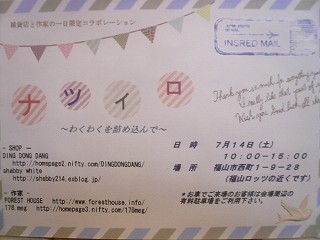 雑貨店と作家の一日限定コラボレーション
INSRED MAIL
ナツイロ
～わくわくを詰め込んで～
- SHOP -
DING DONG DANG
http://homepage2.nifty.com/DINGDONGDANG/
shabby white
http://shabby214.exblog.jp/
- 作家 -
FOREST HOUSE http://www.foresthouse.info/
178.meg http://homepage3.nifty.com/178meg/
日時 7月14日(土)
10:00-15:00
場所 福山市西町1-9-28
(福山ロッツの近くです)
*お車でご来場のお客様は会場周辺の
有料駐車場をご利用下さい。